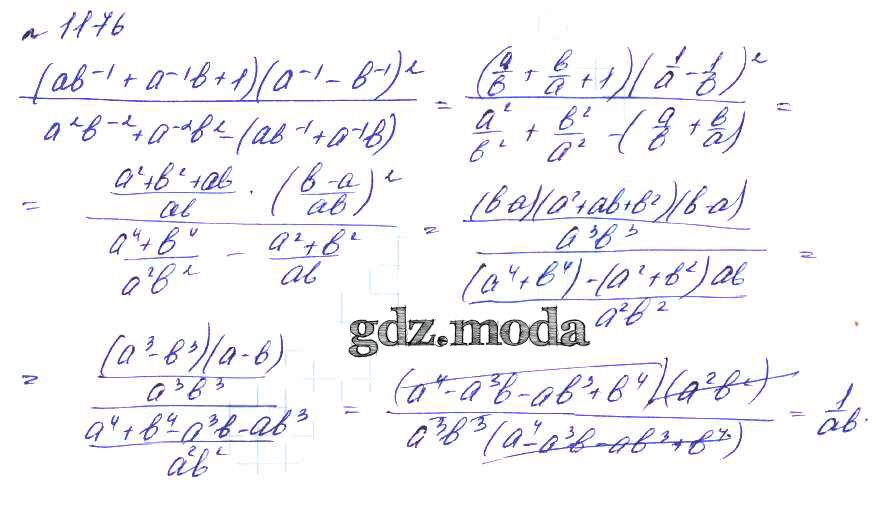 № 1176
(ab⁻¹ + a⁻¹b + 1)(a⁻¹ - b⁻¹)² / (a²b⁻² + a⁻²b² - (ab⁻¹ + a⁻¹b)) = (a/b + b/a + 1)(1/a - 1/b)² / (a²/b² + b²/a² - (a/b + b/a)) =
= ((a² + b² + ab)/(ab) · ((b - a)/(ab))²) / ((a⁴ + b⁴)/(a²b²) - (a² + b²)/(ab)) = ((b-a)(a² + ab + b²)(b-a)/(a³b³)) / (((a⁴ + b⁴) - (a² + b²)ab)/(a²b²)) =
gdz.moda
= ((a³ - b³)(a - b)/(a³b³)) / ((a⁴ + b⁴ - a³b - ab³)/(a²b²)) = (a⁴ - a³b - ab³ + b⁴)(a²b²) / (a³b³(a⁴ - a³b - ab³ + b⁴)) = 1/ab.